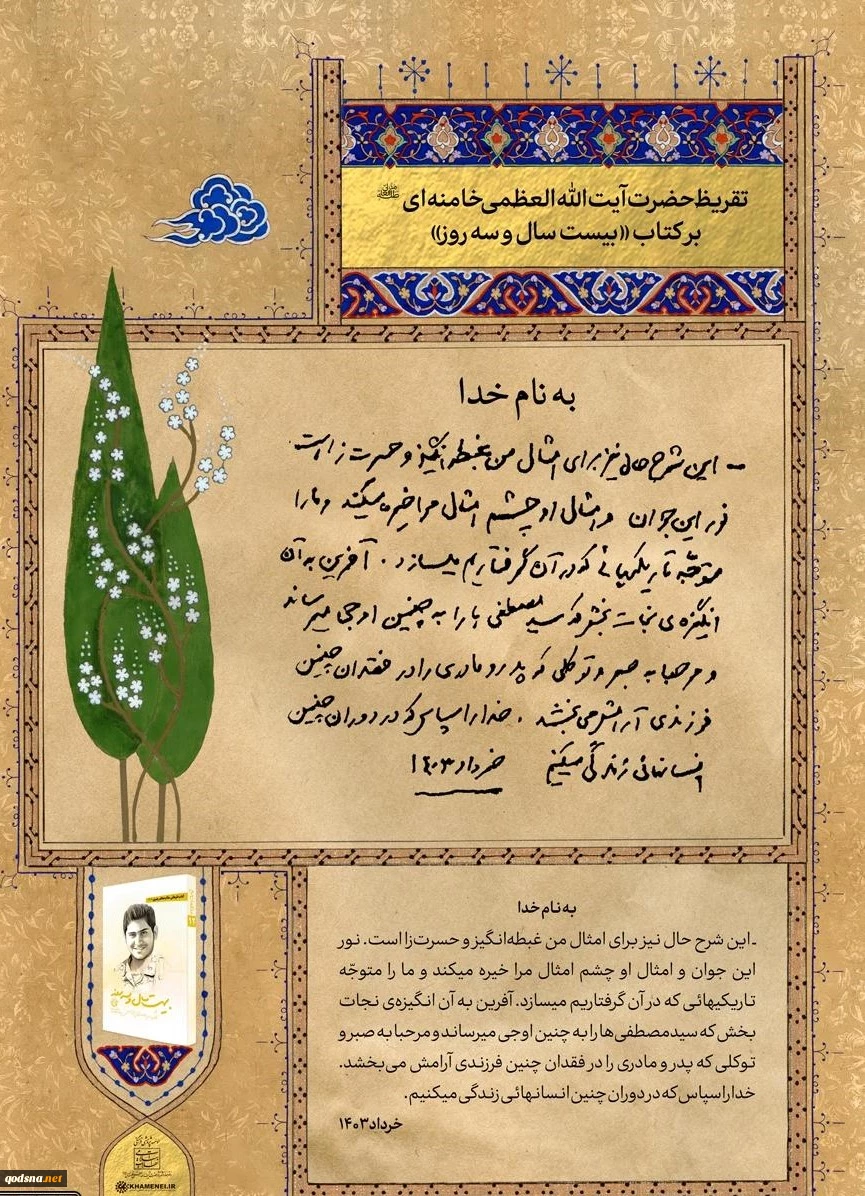 تقریظ حضرت آیت الله العظمی خامنه ای
بر کتاب «بیست سال و سه روز»
به نام خدا
- این شرح حال نیز برای امثال من غبطه‌انگیز و حسرت زا است
نور این جوان و امثال او چشم امثال مرا خیره میکند و ما را
متوجّه تاریکیهائی که در آن گرفتاریم میسازد. آفرین به آن
انگیزه‌ی نجات بخش که سید مصطفی ها را به چنین اوجی میرساند
و مرحبا به صبر و توکلی که پدر و مادری را در فقدان چنین
فرزندی آرامش می‌بخشد. خدا را سپاس که در دوران چنین
انسانهائی زندگی میکنیم خرداد ۱۴۰۳
به نام خدا
ـ این شرح حال نیز برای امثال من غبطه‌انگیز و حسرت‌زا است. نور
این جوان و امثال او چشم امثال مرا خیره میکند و ما را متوجّه
تاریکیهائی که در آن گرفتاریم میسازد. آفرین به آن انگیزه‌ی نجات
بخش که سید مصطفی‌ها را به چنین اوجی میرساند و مرحبا به صبر و
توکلی که پدر و مادری را در فقدان چنین فرزندی آرامش می‌بخشد.
خدا را سپاس که در دوران چنین انسانهائی زندگی میکنیم.
خرداد ۱۴۰۳
بیست سال و سه روز
KHAMENEI.IR
qodsna.net